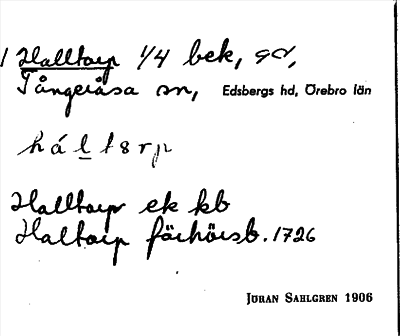 Halltorp 1/4 bek, gd,
Tångeråsa sn, Edsbergs hd, Örebro län
hál̲tərp
Halltorp ek kb
Haltorp förhörsb. 1726
JÖRAN SAHLGREN 1906